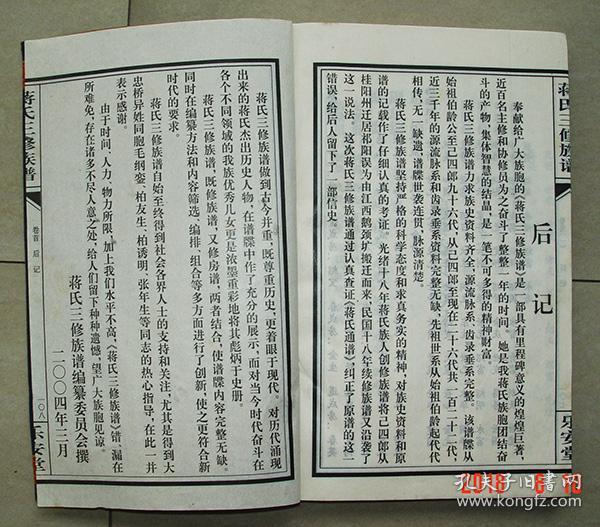 蒋氏三修族谱
乐安堂
后记
奉献给广大族胞的《蒋氏三修族谱》是一部具有里程碑意义的煌煌巨著,
近百名主修和协修员为之奋斗了整整一年的时间。她是我蒋氏族胞团结奋
斗的产物,集体智慧的结晶,是一笔不可多得的精神财富。
蒋氏三修族谱力求族史资料齐全,源流脉系、齿录垂系完整。该谱牒从
始祖伯龄公至己四郎九十六代,从己四郎至现在二十六代共一百二十二代,
近三千年的源流脉系和齿录垂系资料完整无缺。先祖世系从始祖伯龄起代代
相传,无一缺遗,谱牒世袭连贯,脉源清楚。
蒋氏三修族谱坚持严格的科学态度和求真务实的精神,对族史资料和原
谱的记载作了仔细认真的考证。光绪十八年蒋氏族人创修族谱将己四郎从
桂阳州迁居祁阳误为由江西鹅颈圹搬迁而来,民国十八年续修族谱又沿袭了
这一说法。这次蒋氏三修族谱通过认真查证《蒋氏通谱》,纠正了原谱的这一
错误,给后人留下了一部信史。
蒋氏三修族谱做到古今并重,既尊重历史,更着眼于现代。对历代涌现
出来的蒋氏杰出历史人物,在谱牒中作了充分的展示,而对当今时代奋斗在
各个不同领域的我族优秀儿女更是浓墨重彩地将其彪炳于史册。
蒋氏三修族谱,既修族谱,又修房谱,两者结合,使谱牒内容完整无缺。
同时在编纂方法和内容筛选、编排、组合等多方面进行了创新,使之更符合新
时代的要求。
蒋氏三修族谱自始至终得到社会各界人士的支持和关注,尤其是得到大
忠桥异姓同胞毛纲銮、柏友生、柏诱明、张年生等同志的热心指导,在此一并
表示感谢。
由于时间、人力、物力所限,加上我们水平不高,《蒋氏三修族谱》错、漏在
所难免,存在诸多不尽人意之处,给人们留下种种遗憾,望广大族胞见谅。
蒋氏三修族谱编纂委员会撰
二〇〇四年三月
蒋氏三修族谱
卷首 后记
一〇八
乐安堂
孔夫子旧书网
kongfz.com